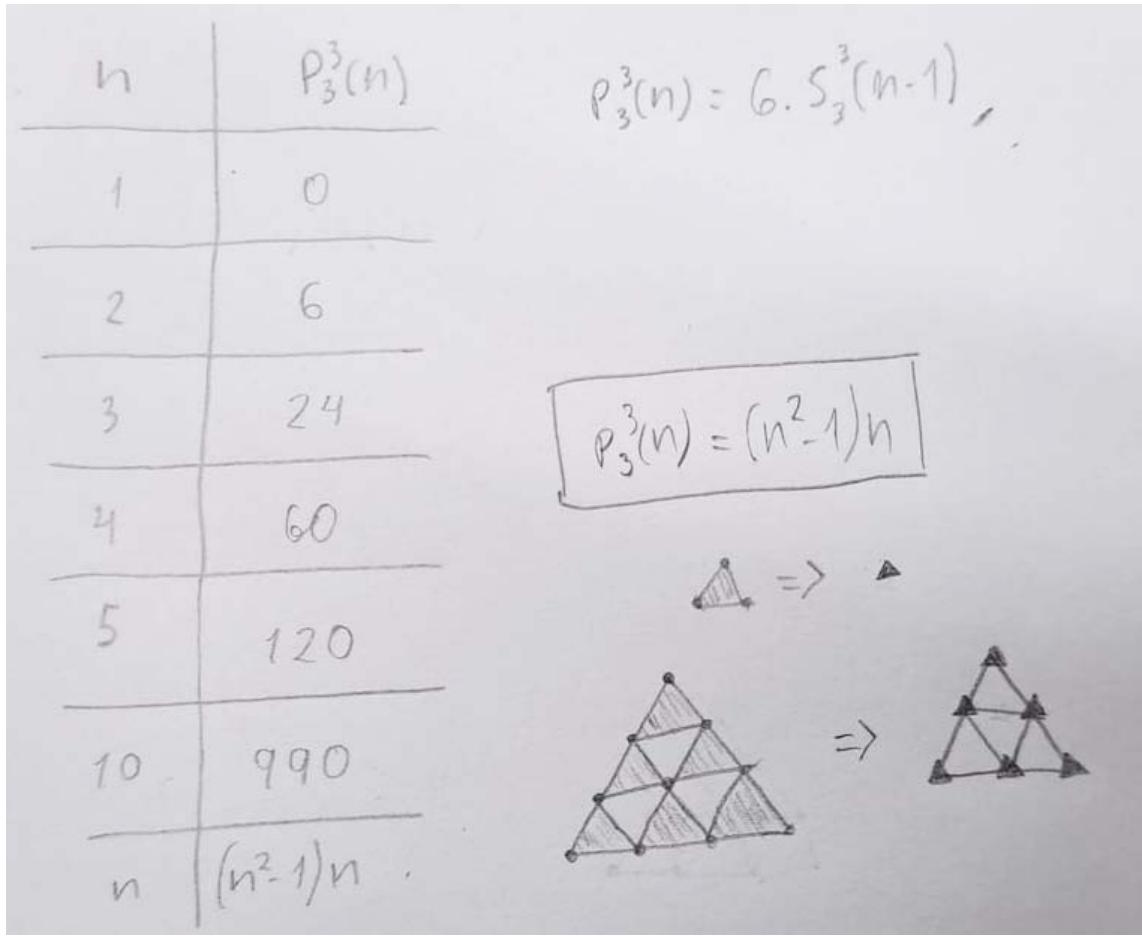 n P₃³(n)
1 0
2 6
3 24
4 60
5 120
10 990
n (n²-1)n .
P₃³(n) = 6 . S₃³(n-1)
P₃³(n) = (n²-1)n
=>
=>